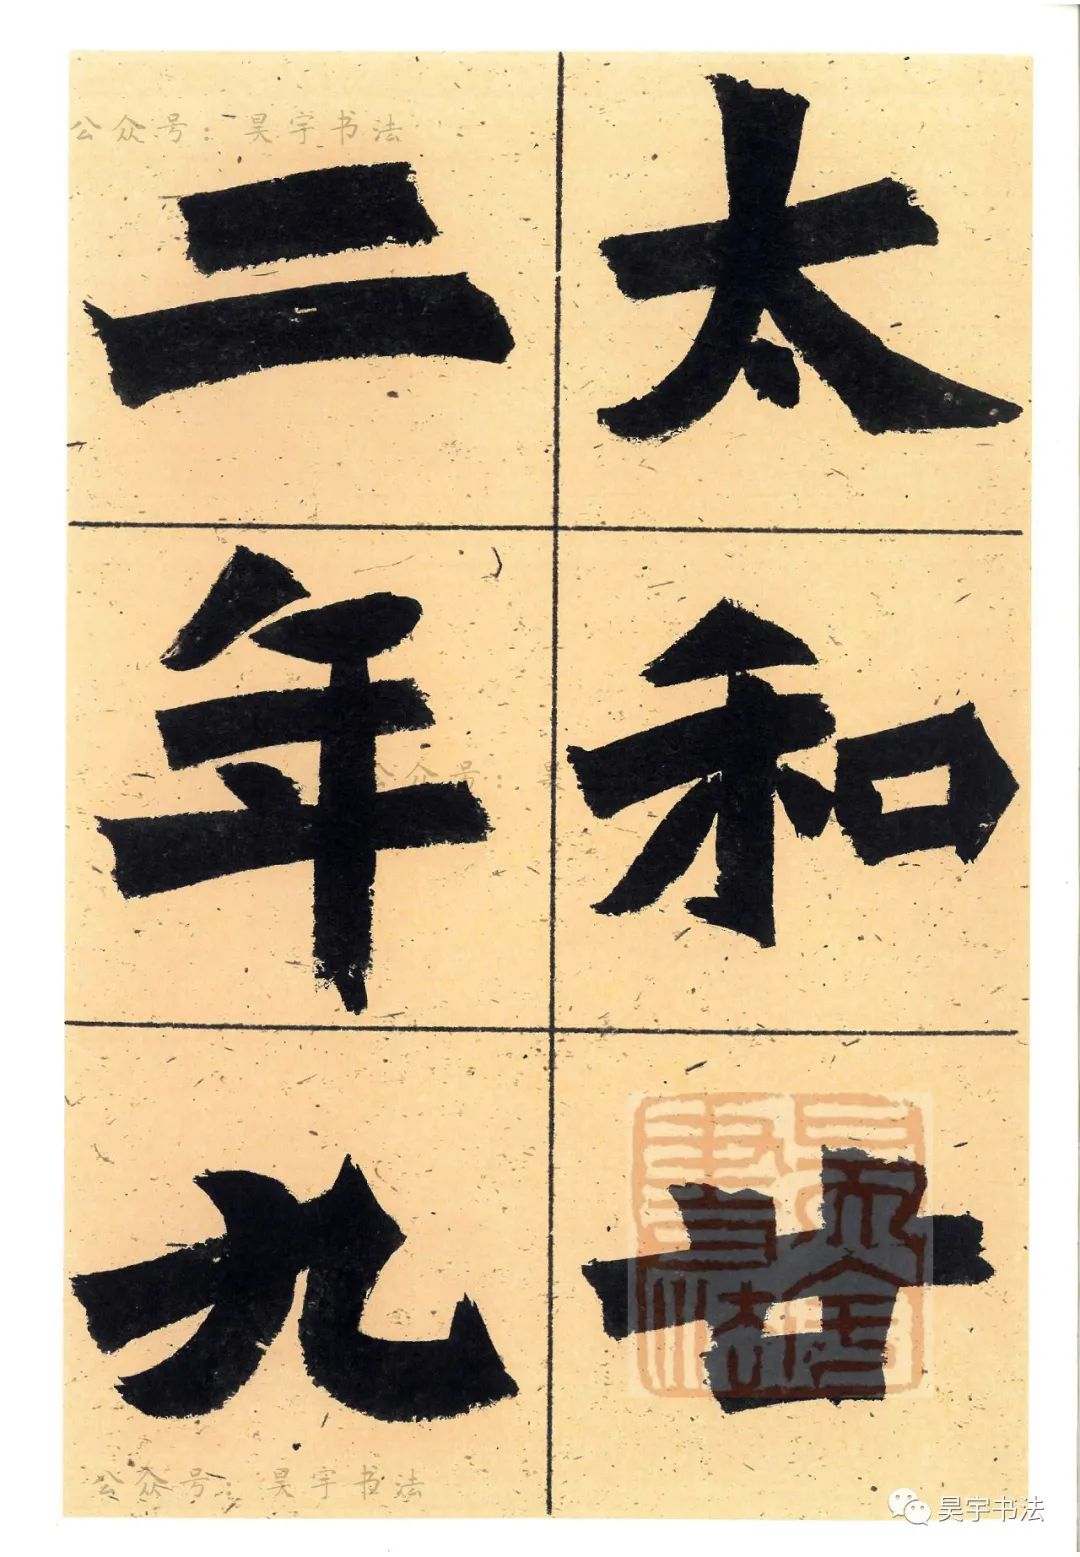 太和廿
二年九
公众号：昊宇书法
公众号：
公众号：昊宇书法
昊宇书法